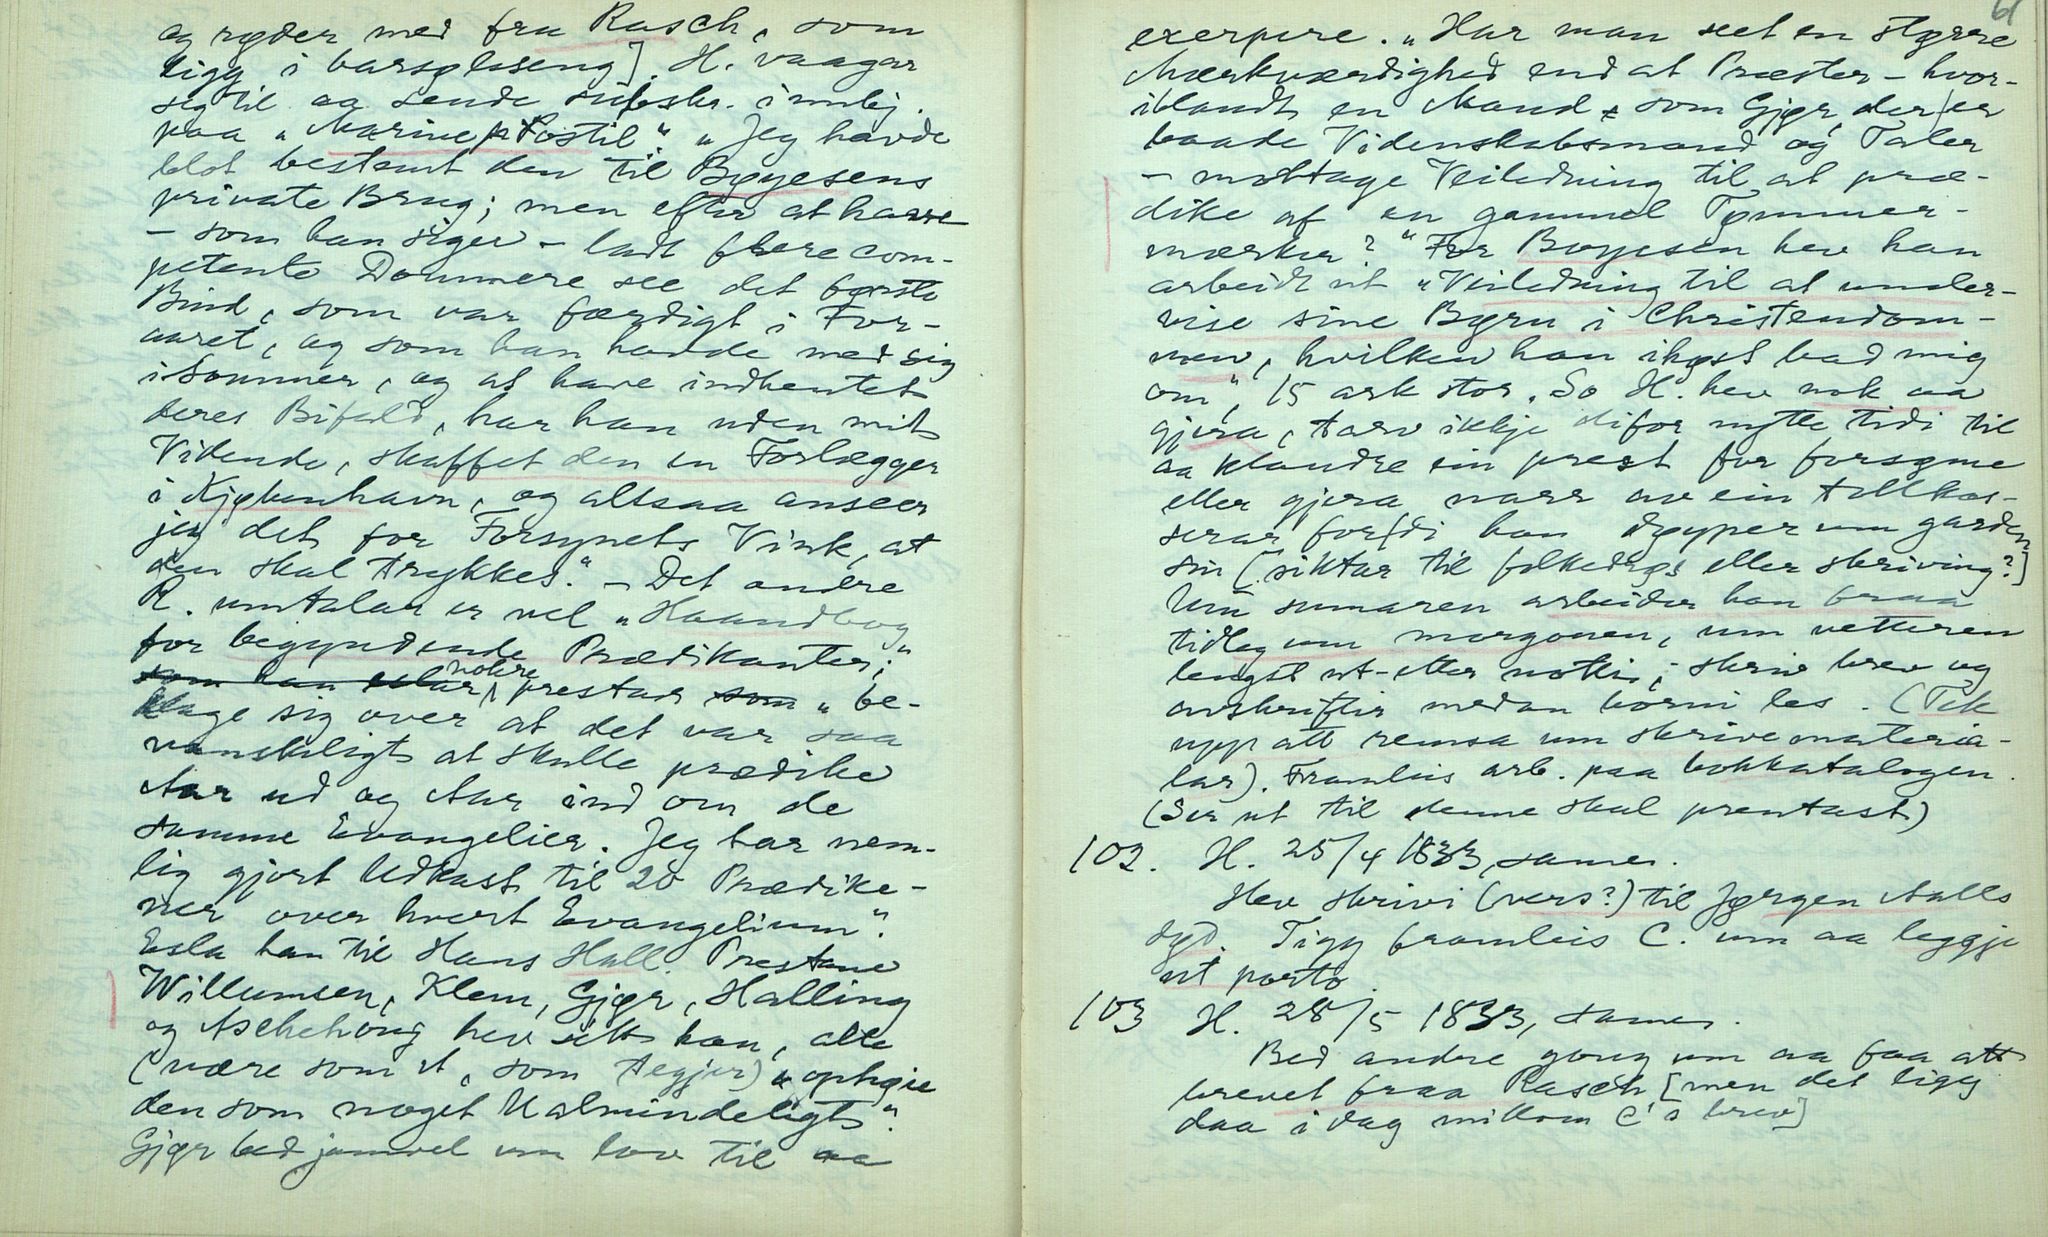 og ryder med fra Rasch, som
ligg i barselseng]. H. vaagar
seg til aa sende subskr. innbj.
paa "Marinep Postil". "Jeg havde
blot bestemt den til Bøyesens
private Brug; men efter at have
– som han siger – ladt flere com-
petente Dommere see det første
Bind, som var færdigt i For-
aaret, og som han havde med sig
i Sommer, og at have indhentet
deres Bifald, har han uden mit
Vidende, skaffet den en Forlægger
i Kjøbenhavn, og altsaa anseer
jeg det for Forsynets Vink, at
den skal trykkes." – Det andre
R. umtalar er vel "Haandbog
for begyndende Prædikanter";
som han nokre prestar som "be-
klage sig over at det var saa
vanskeligt at skulle prædike
Aar ud og Aar ind om de
samme Evangelier. Jeg har nem-
lig gjort Udkast til 20 Prædike-
ner over hvert Evangelium".
Esla han til Hans Hall. Prestane
Willumsen, Klem, Gjør, Halling
og Aschehoug hev sétt han, alle
(være som it, som tegjer) "ophøie
den som noget Ualmindeligt".
Gjør bad jamvel um lov til aa
61
exerpere. "Har man seet en større
Mærkværdighed end at Præster – hvor-
iblandt en Mand som Gjør, der er
baade Videnskabsmand og Taler
– modtage Veiledning til at præ-
dike af en gammel Tømmer-
mærker?" For Bøyesen hev han
arbeidt ut "Veiledning til at under-
vise sine Børn i Christendom-
men, hvilken han ihøst bad mig
om", 15 ark stor. So H. hev nok aa
gjera, tarv ikkje difor nytte tidi til
aa klandre ein prest for forsøme
eller gjera narr av ein tollkas-
serar fordi han døyper um garden
sin [siktar til folkedigs eller skriving?]
Um sumaren arbeider han fraa
tidleg um morgonen, um vetteren
lengst ut-etter notti; skriv brev og
avskrifter medan borni les. (Tek
upp att remsa um skrivemateria-
lar). Framleis arb. paa bokkatalogen.
(Ser ut til denne skal prentast)
102. H. 25/4 1833, sames.
Hev skrivi (vers?) til Jørgen Aalls
dyd. Tigg framleis C. um aa leggje
ut porto.
103 H. 28/5 1833, sames.
Bed andre gong um aa faa att
brevet fraa Rasch [men det ligg
daa i dag millom C's brev]